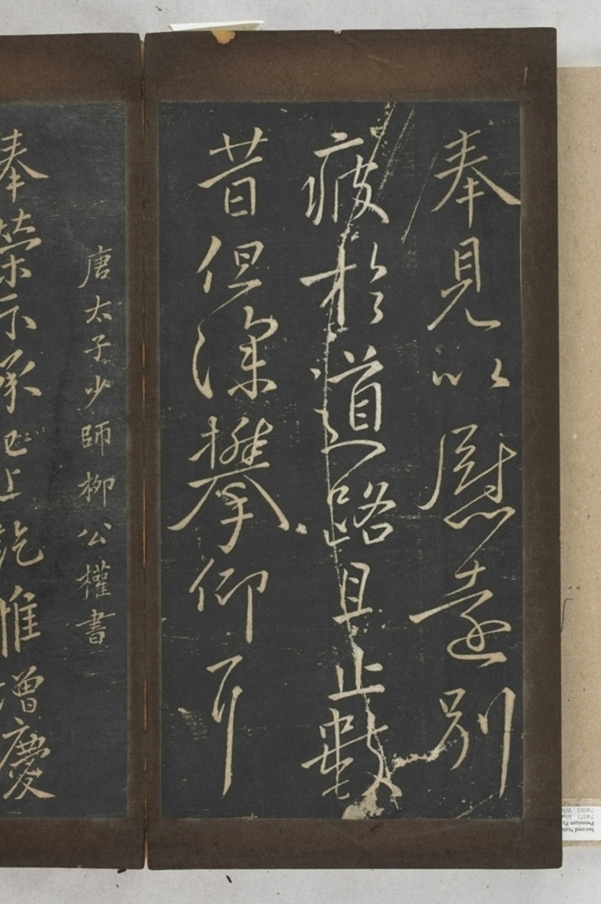 奉見以慰遠別
疲於道路且止數
昔但深攀仰耳
唐太子少師柳公權書
奉榮示承已上訖惟增慶